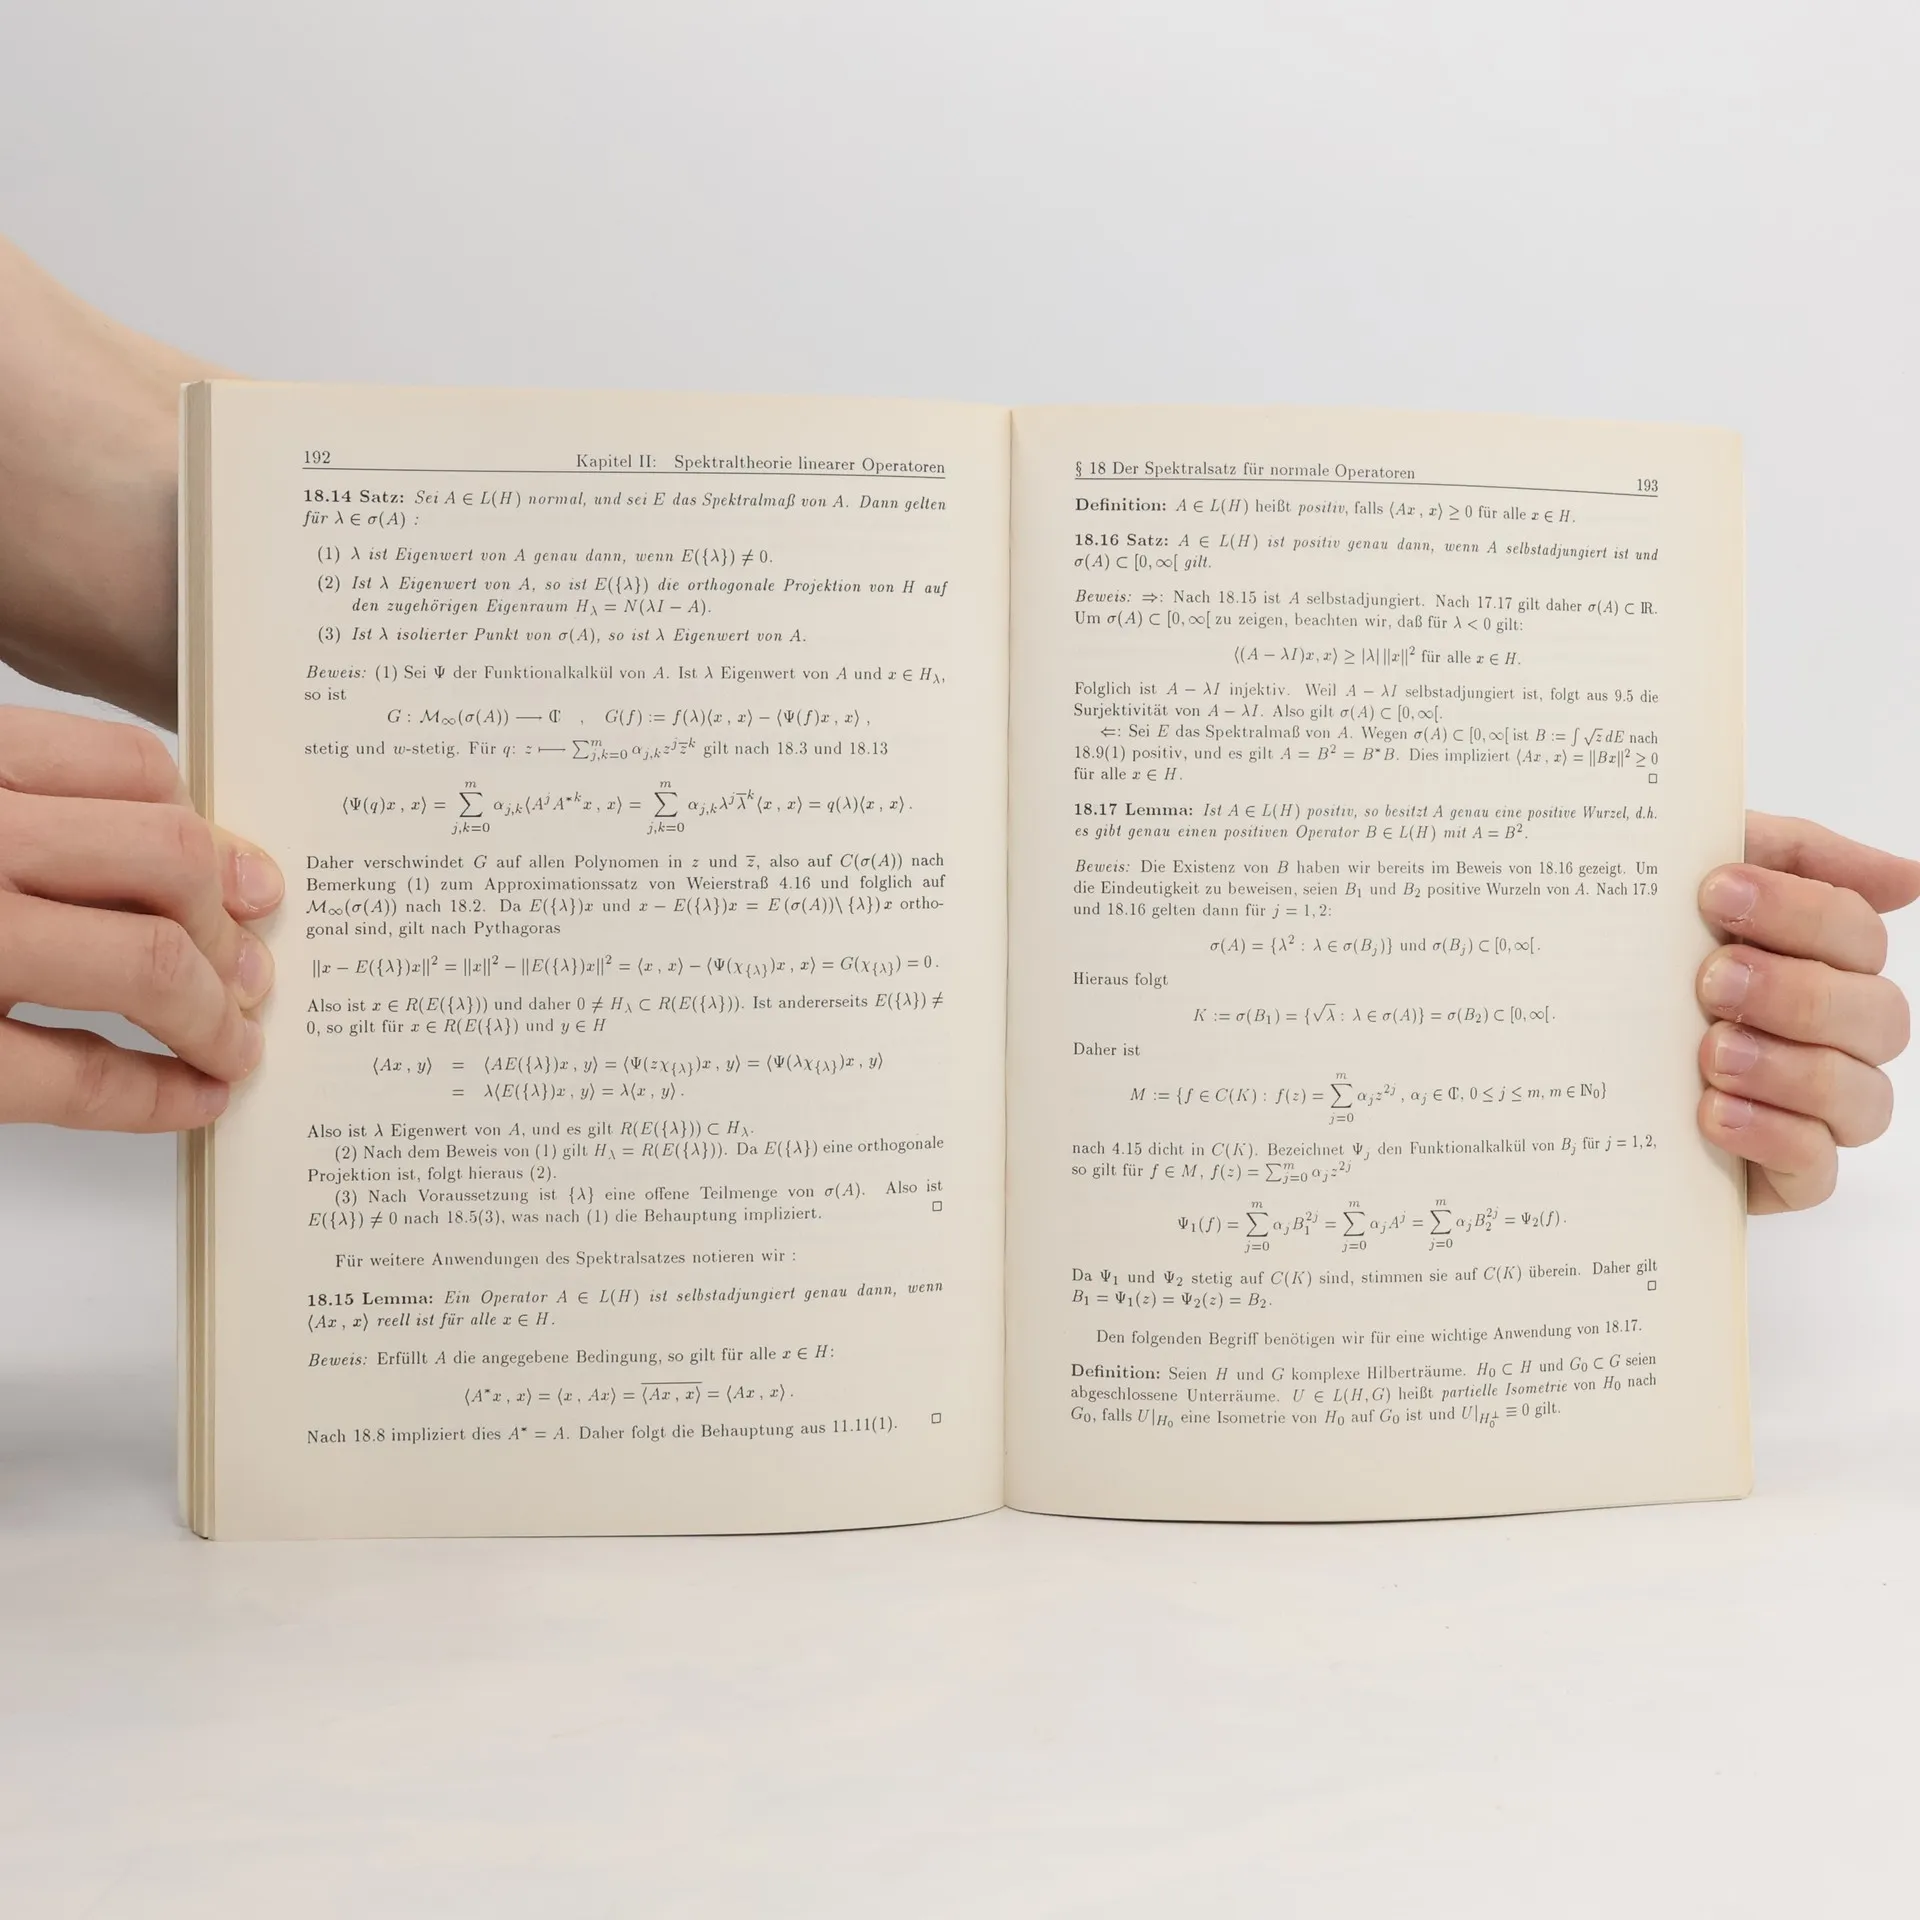 192 Kapitel II: Spektraltheorie linearer Operatoren
18.14 Satz: Sei A ∈ L(H) normal, und sei E das Spektralmaß von A. Dann gelten
für λ ∈ σ(A) :
(1) λ ist Eigenwert von A genau dann, wenn E({λ}) ≠ 0.
(2) Ist λ Eigenwert von A, so ist E({λ}) die orthogonale Projektion von H auf
den zugehörigen Eigenraum H_λ = N(λI − A).
(3) Ist λ isolierter Punkt von σ(A), so ist λ Eigenwert von A.
Beweis: (1) Sei Ψ der Funktionalkalkül von A. Ist λ Eigenwert von A und x ∈ H_λ,
so ist
G : M_∞(σ(A)) ⟶ ℂ , G(f) := f(λ)⟨x , x⟩ − ⟨Ψ(f)x , x⟩ ,
stetig und w-stetig. Für q: z ⟼ ∑_{j,k=0}^m α_{j,k} z^j z̅^k gilt nach 18.3 und 18.13
⟨Ψ(q)x , x⟩ = ∑_{j,k=0}^m α_{j,k}⟨A^j A*^k x , x⟩ = ∑_{j,k=0}^m α_{j,k} λ^j λ̅^k ⟨x , x⟩ = q(λ)⟨x , x⟩ .
Daher verschwindet G auf allen Polynomen in z und z̅, also auf C(σ(A)) nach
Bemerkung (1) zum Approximationssatz von Weierstraß 4.16 und folglich auf
M_∞(σ(A)) nach 18.2. Da E({λ})x und x − E({λ})x = E(σ(A))\ {λ})x ortho-
gonal sind, gilt nach Pythagoras
||x − E({λ})x||² = ||x||² − ||E({λ})x||² = ⟨x , x⟩ − ⟨Ψ(χ_{λ})x , x⟩ = G(χ_{λ}) = 0 .
Also ist x ∈ R(E({λ})) und daher 0 ≠ H_λ ⊂ R(E({λ})). Ist andererseits E({λ}) ≠
0, so gilt für x ∈ R(E({λ}) und y ∈ H
⟨Ax , y⟩ = ⟨AE({λ})x , y⟩ = ⟨Ψ(zχ_{λ})x , y⟩ = ⟨Ψ(λχ_{λ})x , y⟩
= λ⟨E({λ})x , y⟩ = λ⟨x , y⟩ .
Also ist λ Eigenwert von A, und es gilt R(E({λ})) ⊂ H_λ.
(2) Nach dem Beweis von (1) gilt H_λ = R(E({λ})). Da E({λ}) eine orthogonale
Projektion ist, folgt hieraus (2).
(3) Nach Voraussetzung ist {λ} eine offene Teilmenge von σ(A). Also ist
E({λ}) ≠ 0 nach 18.5(3), was nach (1) die Behauptung impliziert. □
Für weitere Anwendungen des Spektralsatzes notieren wir :
18.15 Lemma: Ein Operator A ∈ L(H) ist selbstadjungiert genau dann, wenn
⟨Ax , x⟩ reell ist für alle x ∈ H.
Beweis: Erfüllt A die angegebene Bedingung, so gilt für alle x ∈ H:
⟨A*x , x⟩ = ⟨x , Ax⟩ = \overline{⟨Ax , x⟩} = ⟨Ax , x⟩ .
Nach 18.8 impliziert dies A* = A. Daher folgt die Behauptung aus 11.11(1). □
§ 18 Der Spektralsatz für normale Operatoren 193
Definition: A ∈ L(H) heißt positiv, falls ⟨Ax , x⟩ ≥ 0 für alle x ∈ H.
18.16 Satz: A ∈ L(H) ist positiv genau dann, wenn A selbstadjungiert ist und
σ(A) ⊂ [0, ∞[ gilt.
Beweis: ⇒: Nach 18.15 ist A selbstadjungiert. Nach 17.17 gilt daher σ(A) ⊂ ℝ.
Um σ(A) ⊂ [0, ∞[ zu zeigen, beachten wir, daß für λ < 0 gilt:
⟨(A − λI)x, x⟩ ≥ |λ| ||x||² für alle x ∈ H.
Folglich ist A − λI injektiv. Weil A − λI selbstadjungiert ist, folgt aus 9.5 die
Surjektivität von A − λI. Also gilt σ(A) ⊂ [0, ∞[.
⇐: Sei E das Spektralmaß von A. Wegen σ(A) ⊂ [0, ∞[ ist B := ∫ √z dE nach
18.9(1) positiv, und es gilt A = B² = B*B. Dies impliziert ⟨Ax , x⟩ = ||Bx||² ≥ 0
für alle x ∈ H. □
18.17 Lemma: Ist A ∈ L(H) positiv, so besitzt A genau eine positive Wurzel, d.h.
es gibt genau einen positiven Operator B ∈ L(H) mit A = B².
Beweis: Die Existenz von B haben wir bereits im Beweis von 18.16 gezeigt. Um
die Eindeutigkeit zu beweisen, seien B₁ und B₂ positive Wurzeln von A. Nach 17.9
und 18.16 gelten dann für j = 1, 2:
σ(A) = {λ² : λ ∈ σ(B_j)} und σ(B_j) ⊂ [0, ∞[ .
Hieraus folgt
K := σ(B₁) = {√λ : λ ∈ σ(A)} = σ(B₂) ⊂ [0, ∞[ .
Daher ist
M := {f ∈ C(K) : f(z) = ∑_{j=0}^m α_j z^{2j} , α_j ∈ ℂ, 0 ≤ j ≤ m, m ∈ ℕ₀}
nach 4.15 dicht in C(K). Bezeichnet Ψ_j den Funktionalkalkül von B_j für j = 1, 2,
so gilt für f ∈ M, f(z) = ∑_{j=0}^m α_j z^{2j}
Ψ₁(f) = ∑_{j=0}^m α_j B₁^{2j} = ∑_{j=0}^m α_j A^j = ∑_{j=0}^m α_j B₂^{2j} = Ψ₂(f) .
Da Ψ₁ und Ψ₂ stetig auf C(K) sind, stimmen sie auf C(K) überein. Daher gilt
B₁ = Ψ₁(z) = Ψ₂(z) = B₂. □
Den folgenden Begriff benötigen wir für eine wichtige Anwendung von 18.17.
Definition: Seien H und G komplexe Hilberträume. H₀ ⊂ H und G₀ ⊂ G seien
abgeschlossene Unterräume. U ∈ L(H, G) heißt partielle Isometrie von H₀ nach
G₀, falls U|_{H₀} eine Isometrie von H₀ auf G₀ ist und U|_{H₀^⊥} ≡ 0 gilt.